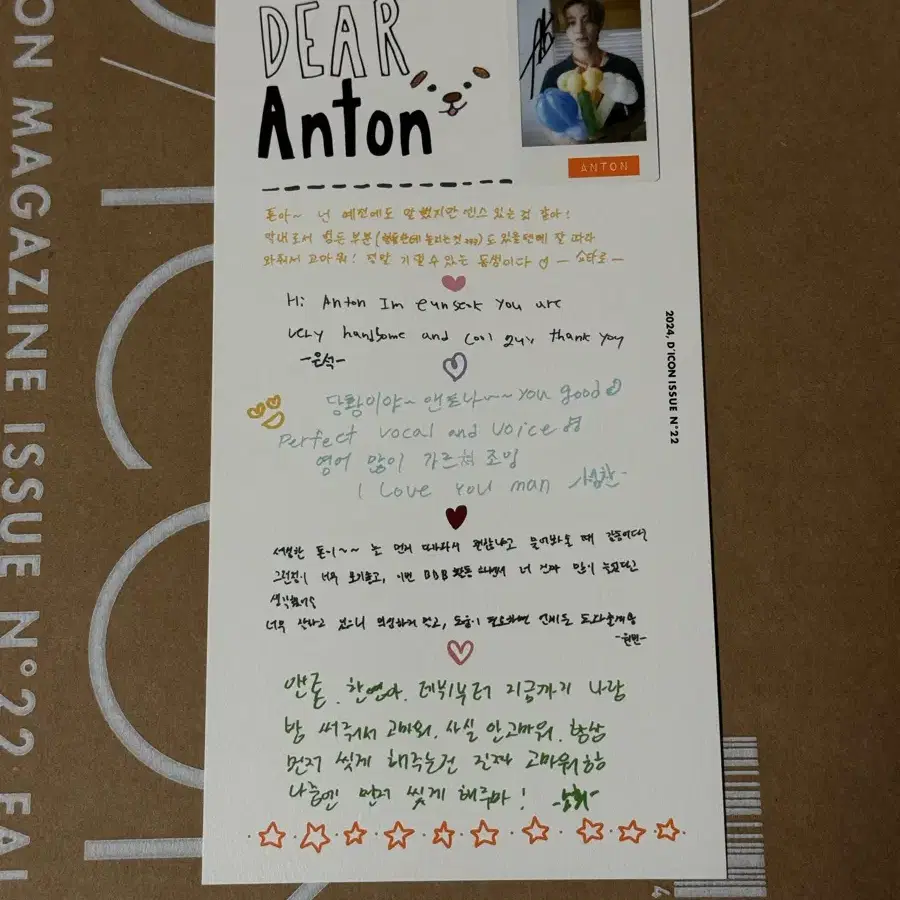 DEAR
Anton
ANTON
톤아~ 넌 예전에도 말했지만 센스 있는것 같아!
막내로서 힘든 부분(형들한테 놀리는것 ㅋㅋㅋ)도 있을텐데 잘 따라
와줘서 고마워! 정말 기댈 수 있는 동생이다 ♡ - 쇼타로 -
Hi Anton Im eunseok you are
very handsome and cool guy thank you
-은석-
당황이야~ 앤토나~~ You good
Perfect vocal and voice
영어 많이 가르쳐 조잉
I Love You man -성찬-
톤이~~ 늘 먼저 다가와서 괜찮냐고 물어봐줄 때 감동이다?
그런점이 너무 고맙고, 이번 BBB 활동 하면서 너 진짜 많이 늘었다고
생각했어
너무 잘하고 있으니 의심하지 말고, 도움이 필요하면 언제든 도와줄게
-원빈-
앤톤, 찬영아. 데뷔부터 지금까지 나랑
방 써줘서 고마워. 사실 안고마워. 항상
먼저 씻게 해주는건 진짜 고마워
나중엔 먼저 씻게 해주마! -소희-
2024, D'ICON ISSUE N°22
ON MAGAZINE ISSUE N°22